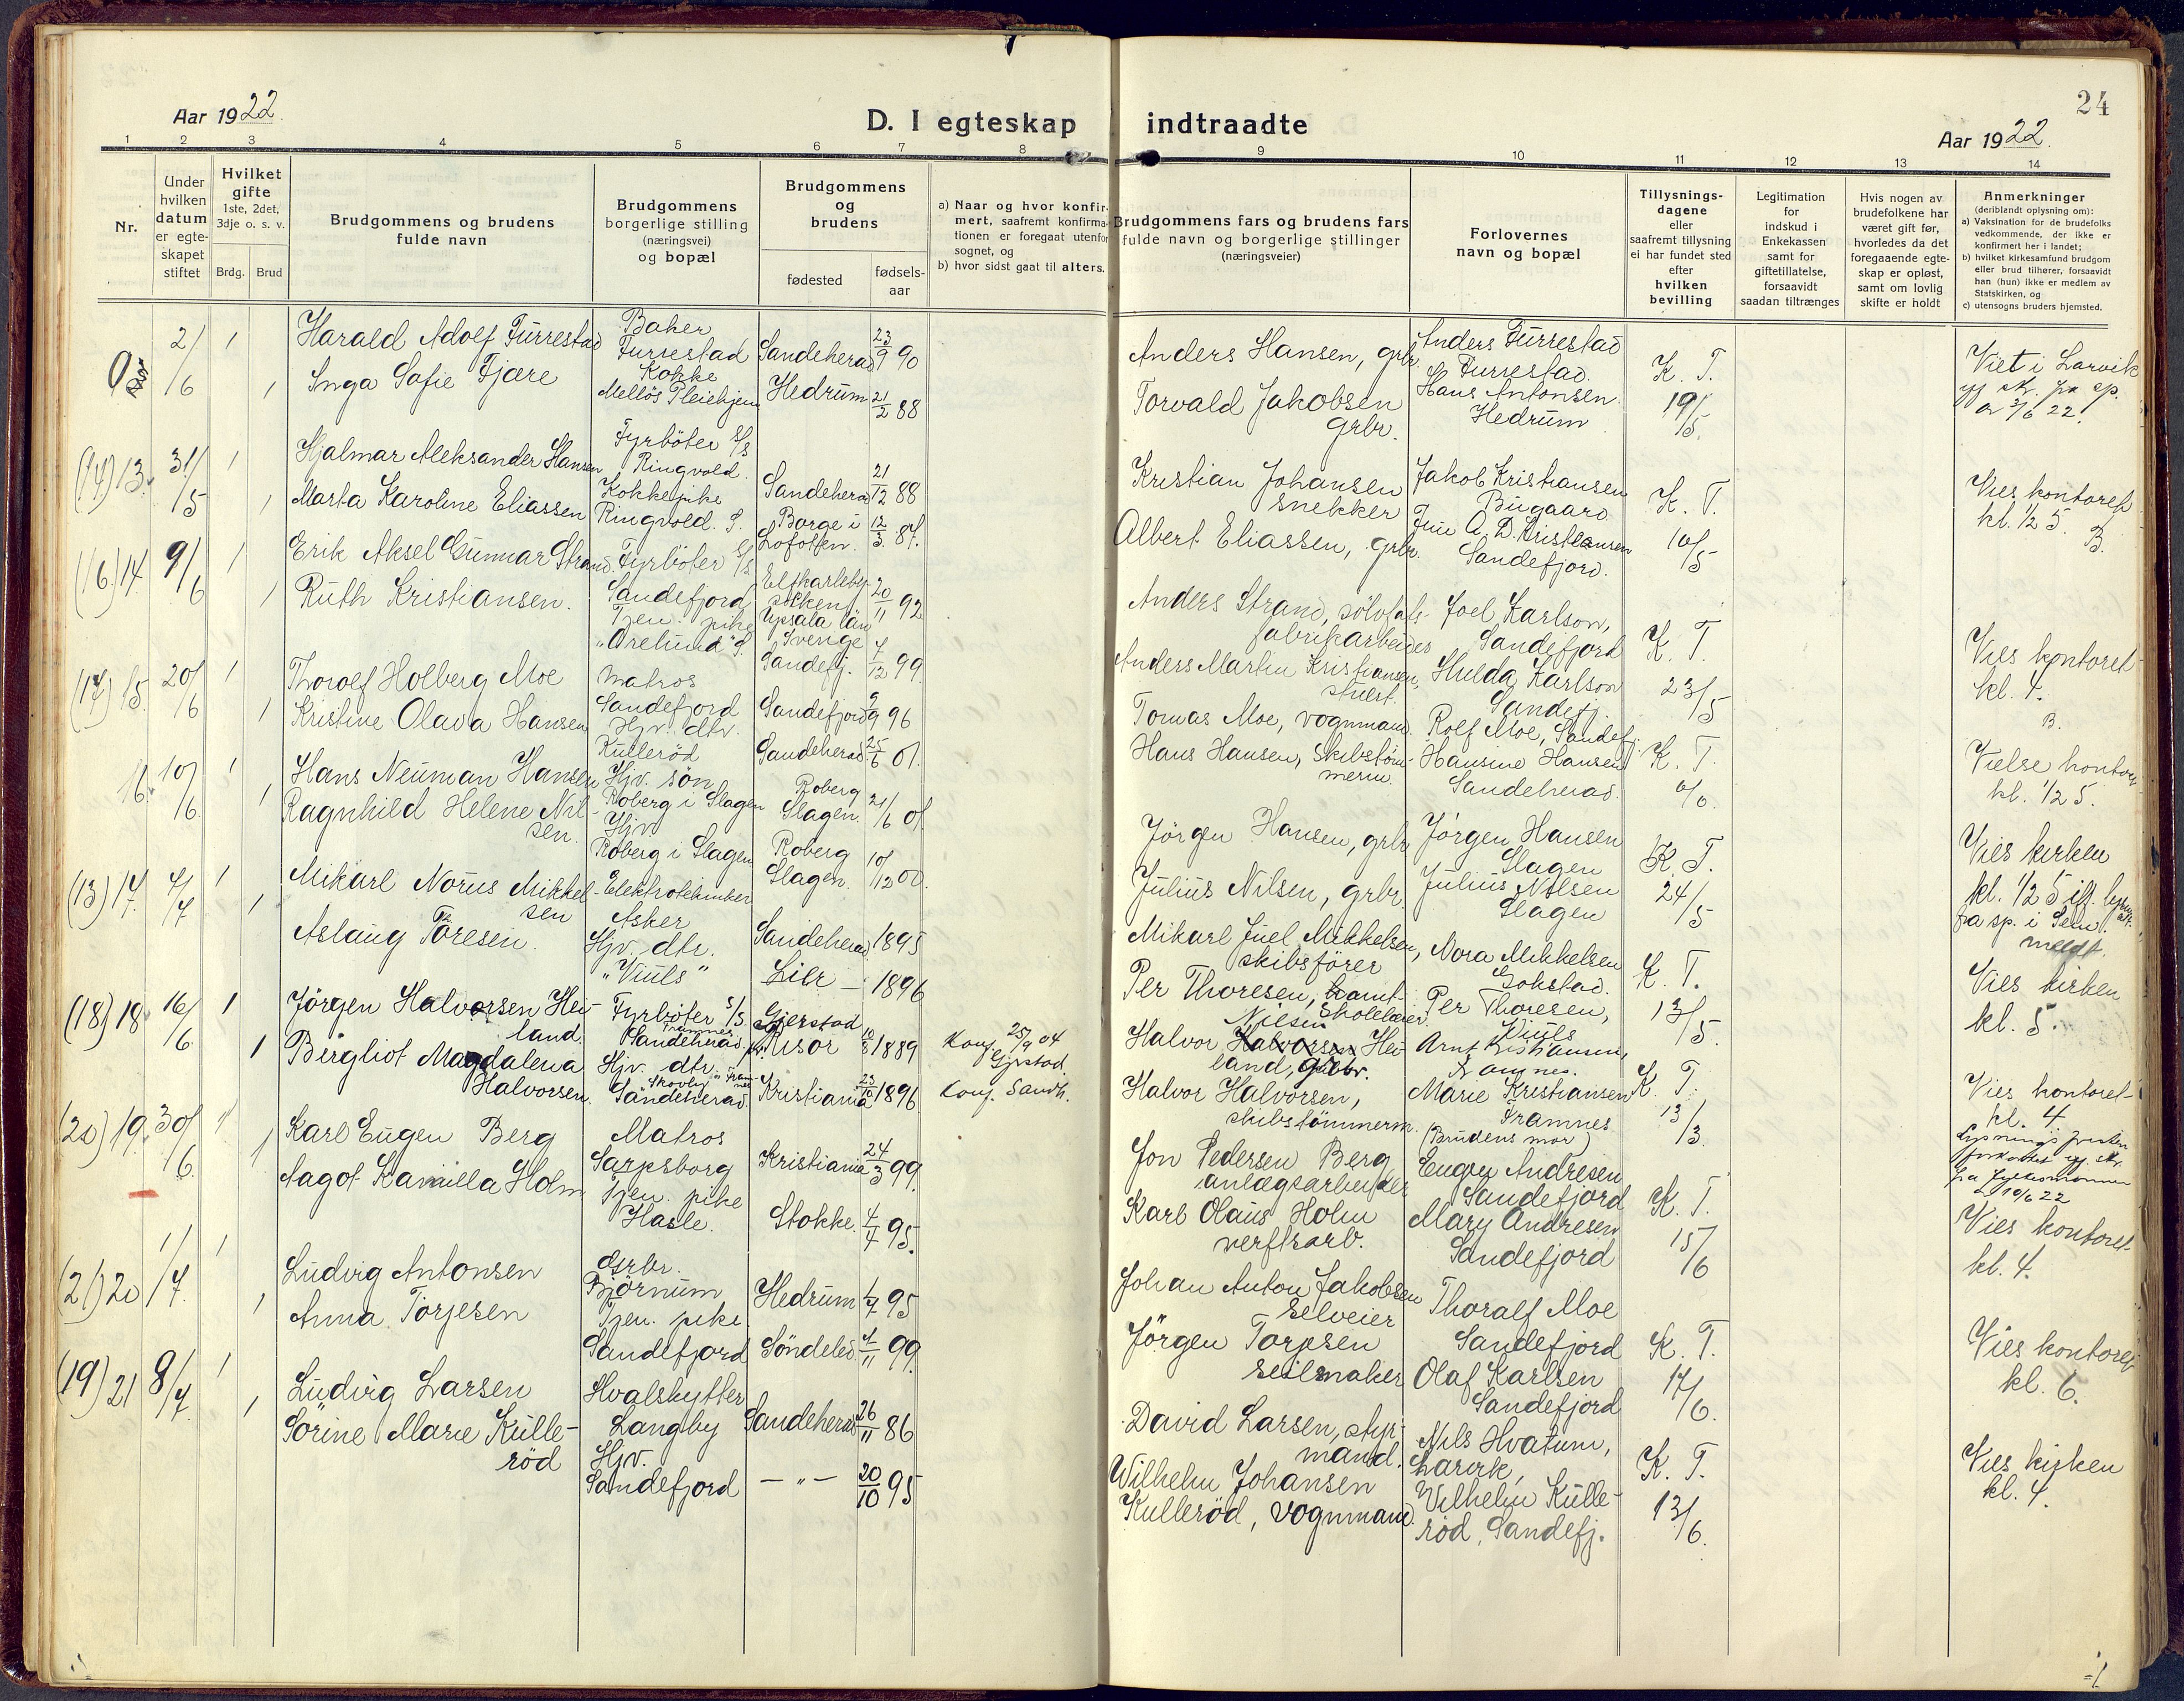 24
Aar 1922.
D. I egteskap indtraadte
Aar 1922.
1 2 3 4 5 6 7 8 9 10 11 12 13 14
Nr.
Under
hvilken
datum
er egte-
skapet
stiftet
Hvilket
gifte
1ste, 2det,
3dje o. s. v.
Brdg. Brud
Brudgommens og brudens
fulde navn
Brudgommens
borgerlige stilling
(næringsvei)
og bopæl
Brudgommens
og
brudens
fødested
fødsels-
aar
a) Naar og hvor konfir-
mert, saafremt konfirma-
tionen er foregaat utenfor
sognet, og
b) hvor sidst gaat til alters.
Brudgommens fars og brudens fars
fulde navn og borgerlige stillinger
(næringsveier)
Forlovernes
navn og bopæl
Tillysnings-
dagene
eller
saafremt tillysning
ei har fundet sted
efter
hvilken
bevilling
Legitimation
for
indskud i
Enkekassen
samt for
giftetillatelse,
forsaavidt
saadan tiltrænges
Hvis nogen av
brudefolkene har
været gift før,
hvorledes da det
foregaaende egte-
skap er opløst,
samt om lovlig
skifte er holdt
Anmerkninger
(deriblendt oplysning om):
a) Vaksination for de brudefolks
vedkommende, der ikke er
konfirmert her i landet;
b) hvilket kirkesamfund brudgom
eller brud tilhører, forsaavidt
han (hun) ikke er medlem av
Statskirken, og
c) utensogns bruders hjemsted.
0
2/6 1
Harald Adolf Furrestad
Baker
Furrestad
Sandeherad 23/9 90
Anders Hansen, grbr.
Anders Furrestad
Furrestad.
K. T.
19/5.
Viet i Larvik
1 Inga Sofie Fjære
Kokke
Mellös Pleiehjem
Hedrum 21/2 88
Torvald Jakobsen
Grbr.
Hans Antonsen
Hedrum
(14) 13. 31/5 1
Hjalmar Aleksander Hansen
Fyrböter S/S
Ringvold.
Sandeherad 21/12 88
Kristian Johansen
snekker
Jakob Kristiansen
Bugaard
K. T.
10/5
Vies kontoret
kl. 1/2 5.
B.
1 Marta Karoline Eliassen
Kokkepike
Ringvold. S.
Borge i
Lofoten. 12/3 87.
Albert Eliassen, grbr.
Sandefjord.
(16) 14. 9/6 1
Erik Aksel Gunnar Strand.
Fyrböter S/S.
Sandefjord
Elfkarleby
socken
Upsala län
Sverige
20/11 92
Anders Strand,
fabrikarbeider
Joel Karlson,
Sandefjord
K. T.
23/5
Vies kontoret
kl. 4.
B.
1 Ruth Kristiansen.
Tjen. pike
Sandefj. 7/12 99.
Anders Martin Kristiansen,
Hulda Karlson
Sandefj.
(17) 15. 20/6 1
Thorolf Holberg Moe
Matros
Sandefjord
Sandefjord 9/9 96
Tomas Moe, vognmand.
Rolf Moe, Sandefj.
K. T.
6/6.
Vielse kontoret
kl. 1/2 5.
1 Kristine Olava Hansen
Hjv. dtr.
Kullerød
Sandeherad 25/6 01.
Hans Hansen, Skibstöm-
merm.
Hansine Hansen
Sandeherad.
16. 10/6 1
Hans Neuman Hansen
Hjv. sön
Roberg i Slagen
Roberg
Slagen. 21/6 01.
Jörgen Hansen, grbr
Jörgen Hansen
Slagen
K. T.
24/5
Vies kirken
kl. 1/2 5
fra sp. i Sem.
meldt.
1 Ragnhild Helene Nil-
sen.
Hjv
Roberg i Slagen
Roberg
Slagen. 10/12 00.
Julius Nilsen, grbr.
Julius Nilsen
Slagen
(13) 17. 4/7 1
Mikarl Norus Mikkel-
sen
Elektrotekniker
Asker
Sandeherad 1895
Mikarl Juel Mikkelsen,
skibsförer
Nora Mikkelsen
Gokstad.
K. T.
13/5.
Vies kirken
kl. 5.
1 Aslaug Toresen.
Hjv. dtr.
"Viuls"
Lier — 1896
Per Thoresen,
Skolelærer.
Per Thoresen,
Viuls
(18) 18 16/6 1
Jörgen Halvorsen Hei-
land.
Fyrböter S/S.
Framnes
Sandeherad.
Gjerstad
Risör 10/8 1889
Konf. 25/9 04
Gjerstad.
Halvor Halvorsen Hei-
land, grbr.
Arnt Kristiansen,
Framnes.
K. T.
13/3.
Vies kontoret
kl. 4.
1 Bergliot Magdalena
Halvorsen.
Hjv. dtr.
Sandeherad.
Kristiania 1896
Konf. Sandh.
Halvor Halvorsen,
skibstömmerm.
Marie Kristiansen
Framnes
(Brudens mor)
(20) 19. 30/6. 1
Karl Eugen Berg
Matros
Sarpsborg
Kristiania 24/3 99.
Jon Pedersen Berg
anlægsarbeider
Eugen Andresen
Sandefjord
K. T.
15/6
Vies kontoret
kl. 4.
1 Aagot Kamilla Holm
Tjen. pike
Hasle.
Stokke. 4/4 95.
Karl Olaus Holm
verftsarb.
Mary Andresen
Sandefjord
(21) 20 1/7. 1
Ludvig Antonsen
Grbr.
Bjørnum
Hedrum 95
Johan Anton Jakobsen
Selveier
Thoralf Moe
Sandefjord
K. T.
17/6.
Vies kontoret
kl. 6.
1 Anna Torjesen
Tjen. pike
Sandefjord
Söndeled. 99.
Jörgen Torjesen
Seilmaker
Olaf Karlsen
Sandefjord
(19) 21 8/7 1
Ludvig Larsen
Hvalskytter
Langby
Sandeherad 26/11 86
David Larsen, styr-
mand.
Nils Hvatum,
Larvik,
K. T.
13/6.
Vies kirken
kl. 4.
1 Sörine Marie Kulle-
röd
Hjv.
Sandefjord
— " — 20/10 95
Wilhelm Johansen
Kulleröd, vognmand.
Vilhelm Kulle-
röd, Sandefj.